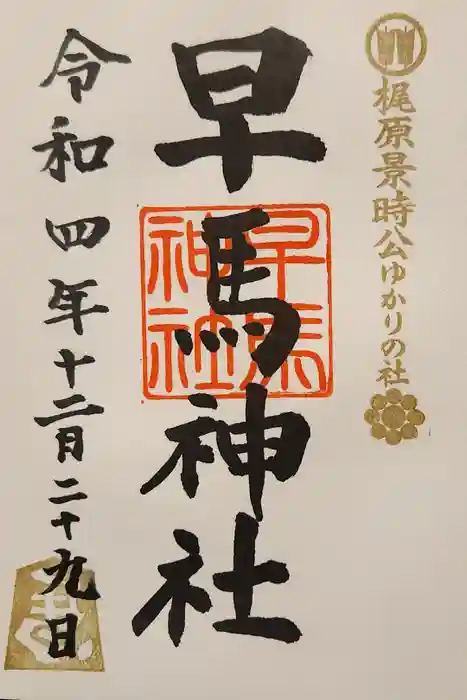 梶原景時公ゆかりの社
早馬神社
早馬
神社
令和四年十二月二十九日